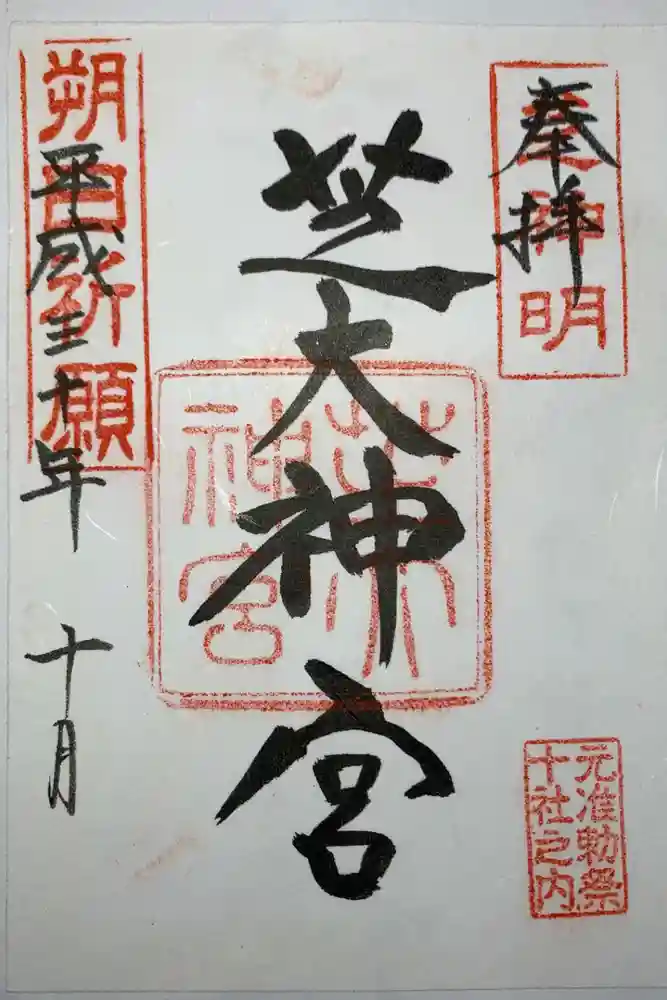 奉拝
芝神明
元准勅祭
十社之内
芝大神宮
芝大
神宮
朔日祈願
平成三十年 十月